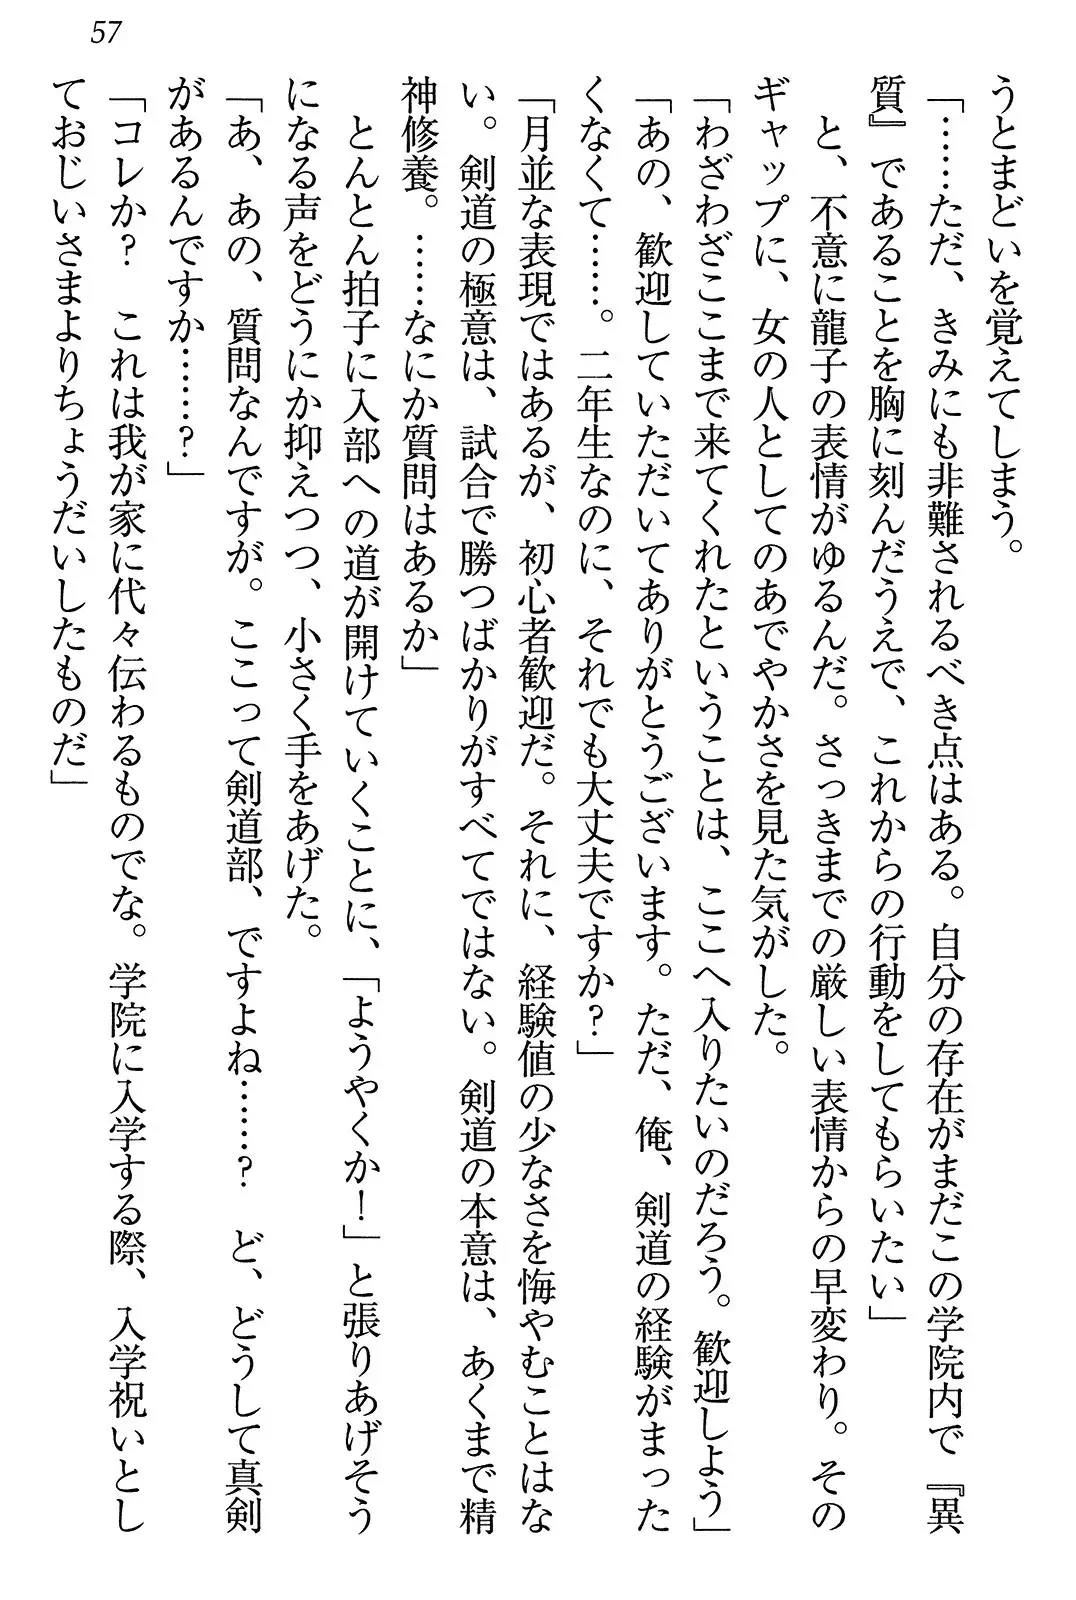 57
うとまどいを覚えてしまう。
「……ただ、きみにも非難されるべき点はある。自分の存在がまだこの学院内で『異
質』であることを胸に刻んだうえで、これからの行動をしてもらいたい」
と、不意に龍子の表情がゆるんだ。さっきまでの厳しい表情からの早変わり。その
ギャップに、女の人としてのあでやかさを見た気がした。
「わざわざここまで来てくれたということは、ここへ入りたいのだろう。歓迎しよう」
「あの、歓迎していただいてありがとうございます。ただ、俺、剣道の経験がまった
くなくて……。二年生なのに、それでも大丈夫ですか？」
「月並な表現ではあるが、初心者歓迎だ。それに、経験値の少なさを悔やむことはな
い。剣道の極意は、試合で勝つばかりがすべてではない。剣道の本意は、あくまで精
神修養。……なにか質問はあるか」
とんとん拍子に入部への道が開けていくことに、「ようやくか！」と張りあげそう
になる声をどうにか抑えつつ、小さく手をあげた。
「あ、あの、質問なんですが。ここって剣道部、ですよね……？　ど、どうして真剣
があるんですか……？」
「コレか？　これは我が家に代々伝わるものでな。学院に入学する際、入学祝いとし
ておじいさまよりちょうだいしたものだ」